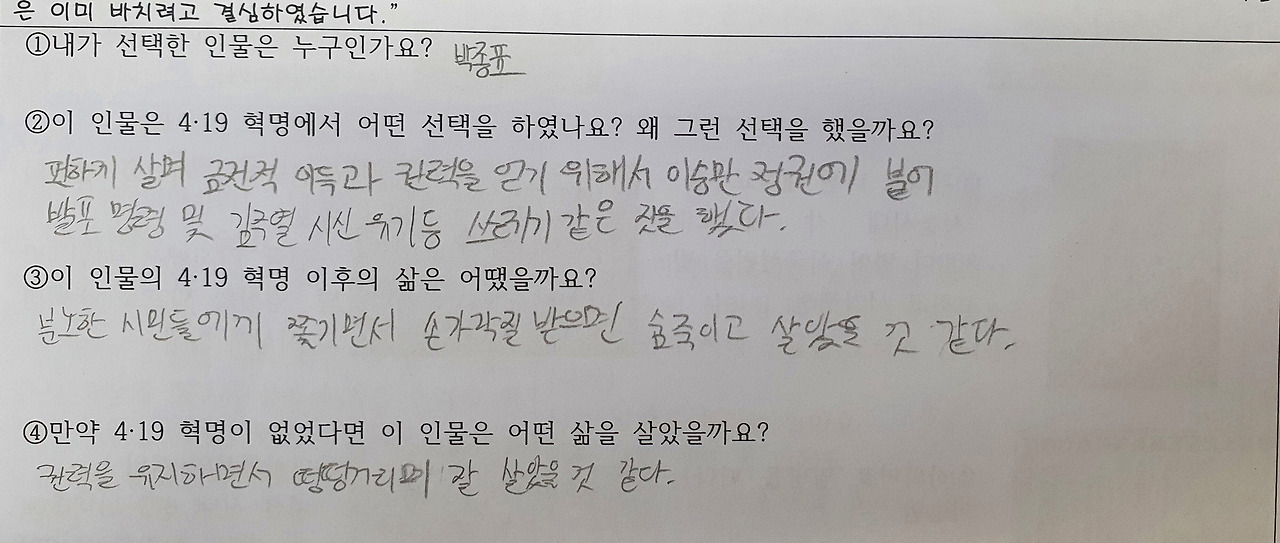 은 이미 바치려고 결심하였습니다.”
①내가 선택한 인물은 누구인가요? 박종표
②이 인물은 4·19 혁명에서 어떤 선택을 하였나요? 왜 그런 선택을 했을까요?
편하게 살며 금전적 이득과 권력을 얻기 위해서 이승만 정권에 붙어
발포 명령 및 김주열 시신 유기등 쓰레기 같은 짓을 했다.
③이 인물의 4·19 혁명 이후의 삶은 어땠을까요?
분노한 시민들에게 쫓기면서 손가락질 받으면 숨죽이고 살았을 것 같다.
④만약 4·19 혁명이 없었다면 이 인물은 어떤 삶을 살았을까요?
권력을 유지하면서 떵떵거리며 잘 살았을 것 같다.